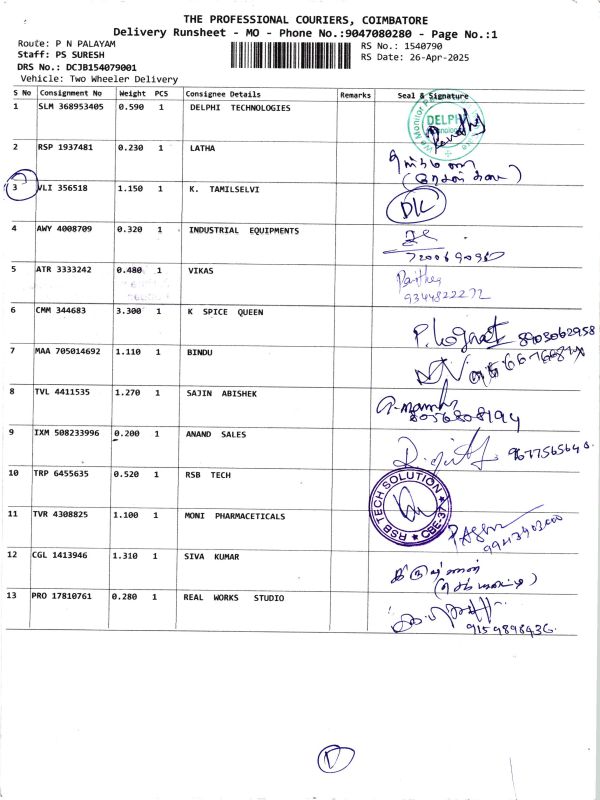 THE PROFESSIONAL COURIERS, COIMBATORE
Delivery Runsheet - MO - Phone No.:9047080280 - Page No.:1
Route: P N PALAYAM
RS No.: 1540790
Staff: PS SURESH
RS Date: 26-Apr-2025
DRS No.: DCJB154079001
Vehicle: Two Wheeler Delivery
S No Consignment No Weight PCS Consignee Details Remarks Seal & Signature
1 SLM 368953405 0.590 1 DELPHI TECHNOLOGIES
DELPHI
2 RSP 1937481 0.230 1 LATHA
3 VLI 356518 1.150 1 K. TAMILSELVI
4 AWY 4008709 0.320 1 INDUSTRIAL EQUIPMENTS
5 ATR 3333242 0.480 1 VIKAS
9344822272
6 CMM 344683 3.300 1 K SPICE QUEEN
8903062958
7 MAA 705014692 1.110 1 BINDU
8 TVL 4411535 1.270 1 SAJIN ABISHEK
8056808194
9 IXM 508233996 0.200 1 ANAND SALES
10 TRP 6455635 0.520 1 RSB TECH
RSB TECH SOLUTION ★ CBE-37 ★
11 TVR 4308825 1.100 1 MONI PHARMACETICALS
12 CGL 1413946 1.310 1 SIVA KUMAR
13 PRO 17810761 0.280 1 REAL WORKS STUDIO
9159898436